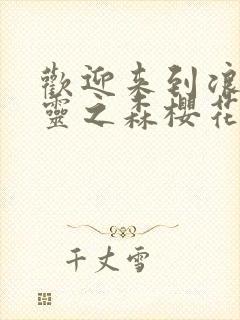 歡迎来到浪
靈之森櫻花
千丈雪